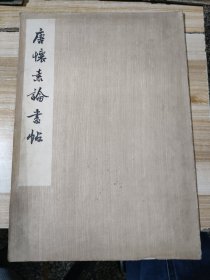 唐懷素論書帖